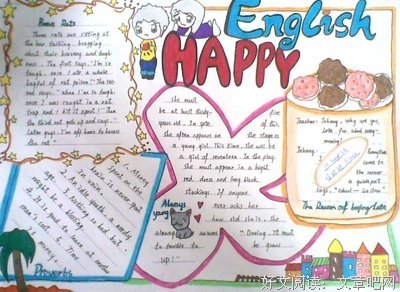 English
HAPPY
Brave Rats
Three rats are sitting at
the bar talking, bragging
about their bravery and tough-
ness. The first says, "I'm so
tough, once I ate a whole
bagful of rat poison." The sec-
ond says, "When I'm so tough,
once I was caught in a rat
trap and I bit it apart." Then
the third rat gets up and says,
later guys, I'm off home to harass
the cat."
She must
be at least thirty-five
years old. In spite of this,
she often appears on the stage as
a young girl. This time, she will be
a girl of seventeen. In the play,
she must appear in a bright
red dress and long black
stockings. If anyone
ever asks her
how old she is, she
always answers, "Darling, It must
be terrible to be grown
up!"
Always
young
Teacher: Johnny, why are you
late for school every
morning?
Johnny:
time
come to
the corner
a guidepost
says, "School - Go Slow".
The Reason of being Late
Money
brain is never
vain.
with youth, a ready
Nothing so bad but
might be a blessing.
4. It is good to learn at another
man's cost. 5. Time
is money.
Proverbs
好文阅读:文章吧网